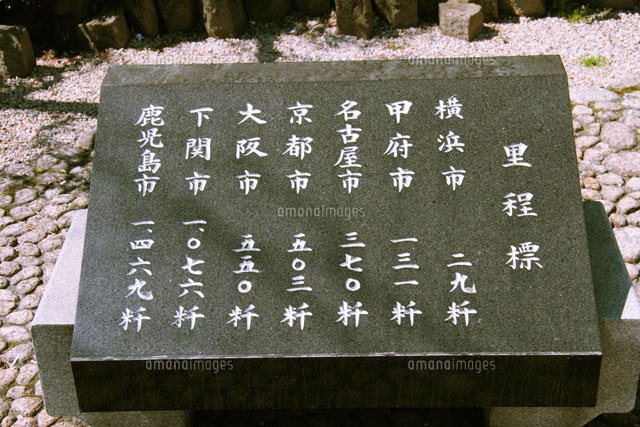 里程標
横浜市 二九粁
甲府市 一三一粁
名古屋市 三七〇粁
京都市 五〇三粁
大阪市 五五〇粁
下関市 一、〇七六粁
鹿児島市 一、四六九粁
amanaimages
amanaimages
amanaimages
amanaimages
amanaimages